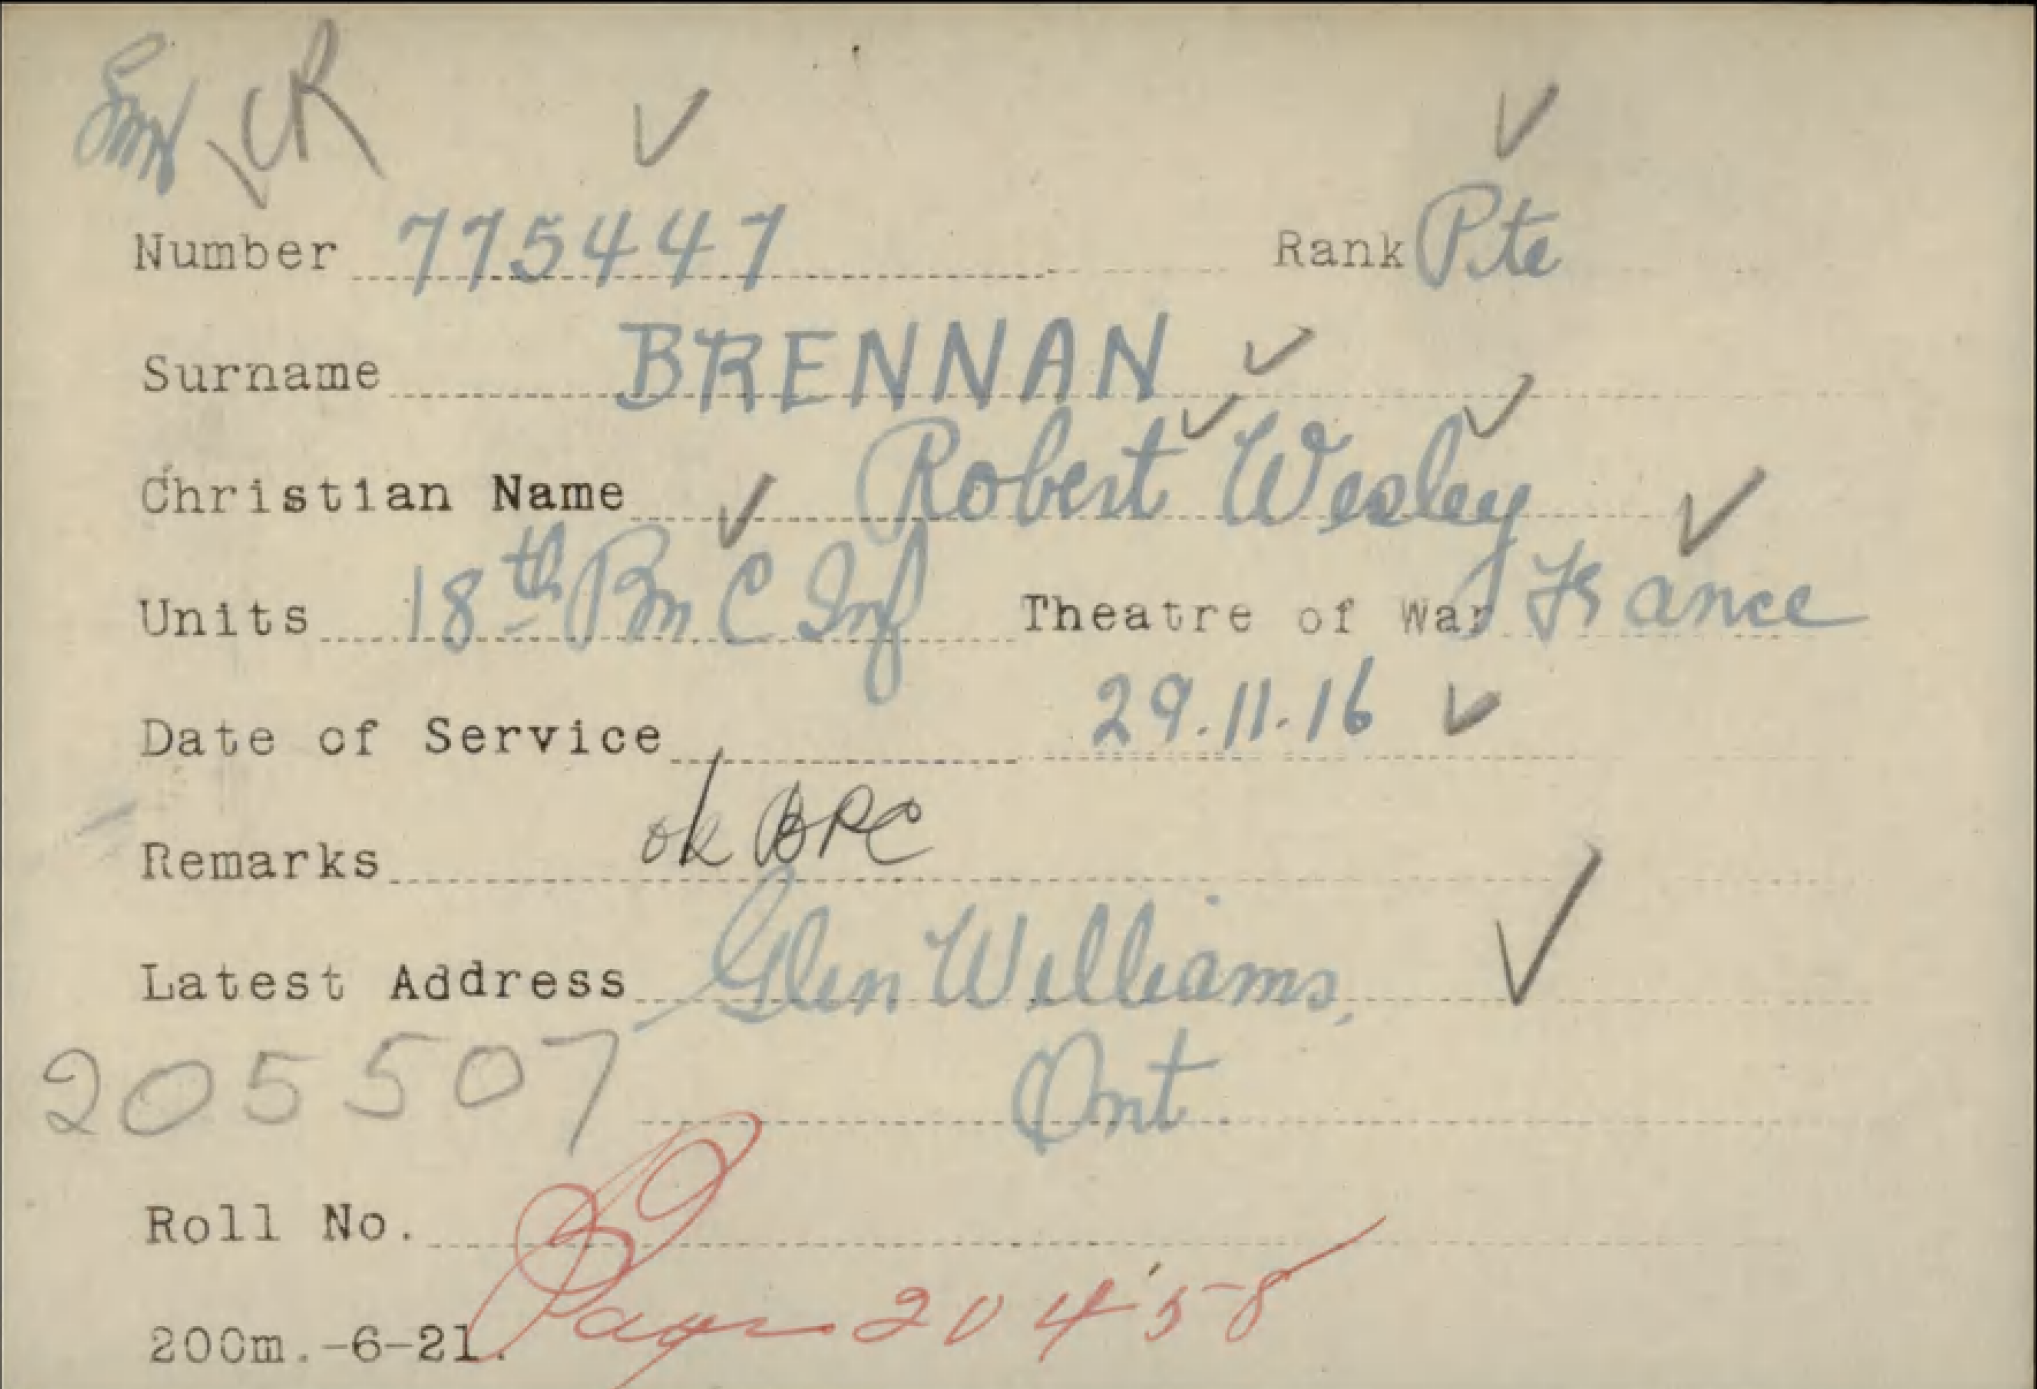 CR
Number 775447 Rank Pte
Surname BRENNAN
Christian Name Robert Wesley
Units 18th Bn C Inf Theatre of War France
Date of Service 29.11.16
Remarks ok BRC
Latest Address Glen Williams,
205507 Ont.
Roll No.
200m.-6-21. Page 20458